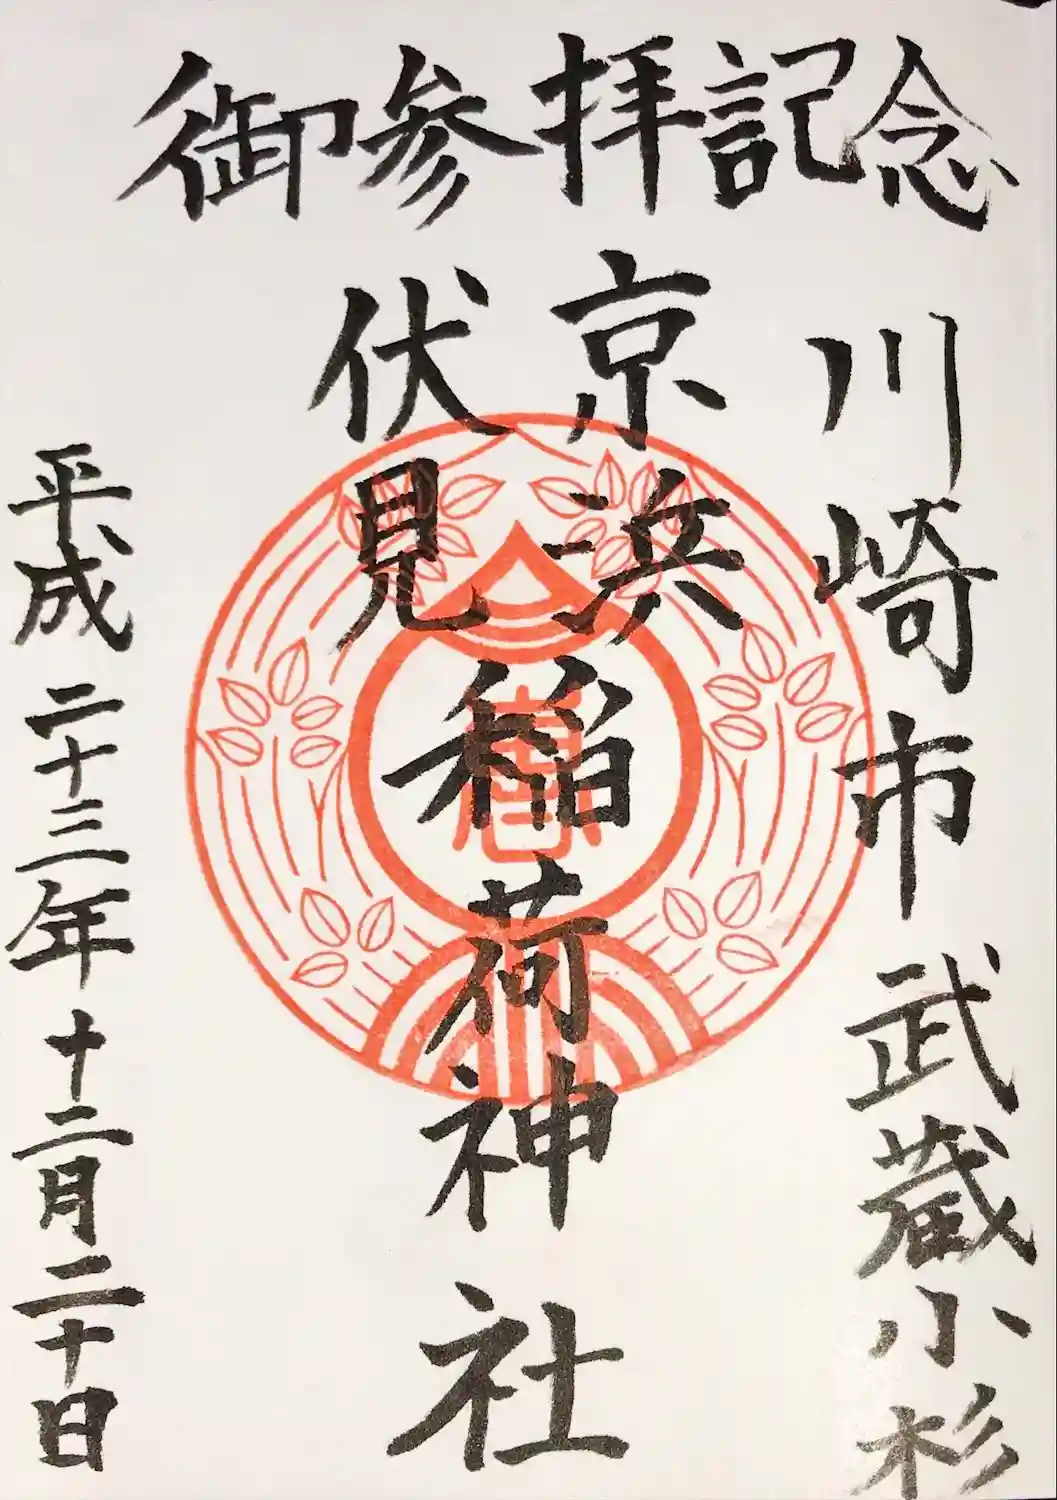 御参拝記念
川崎市武蔵小杉
京浜
伏見
稲荷神社
平成二十三年十二月二十日